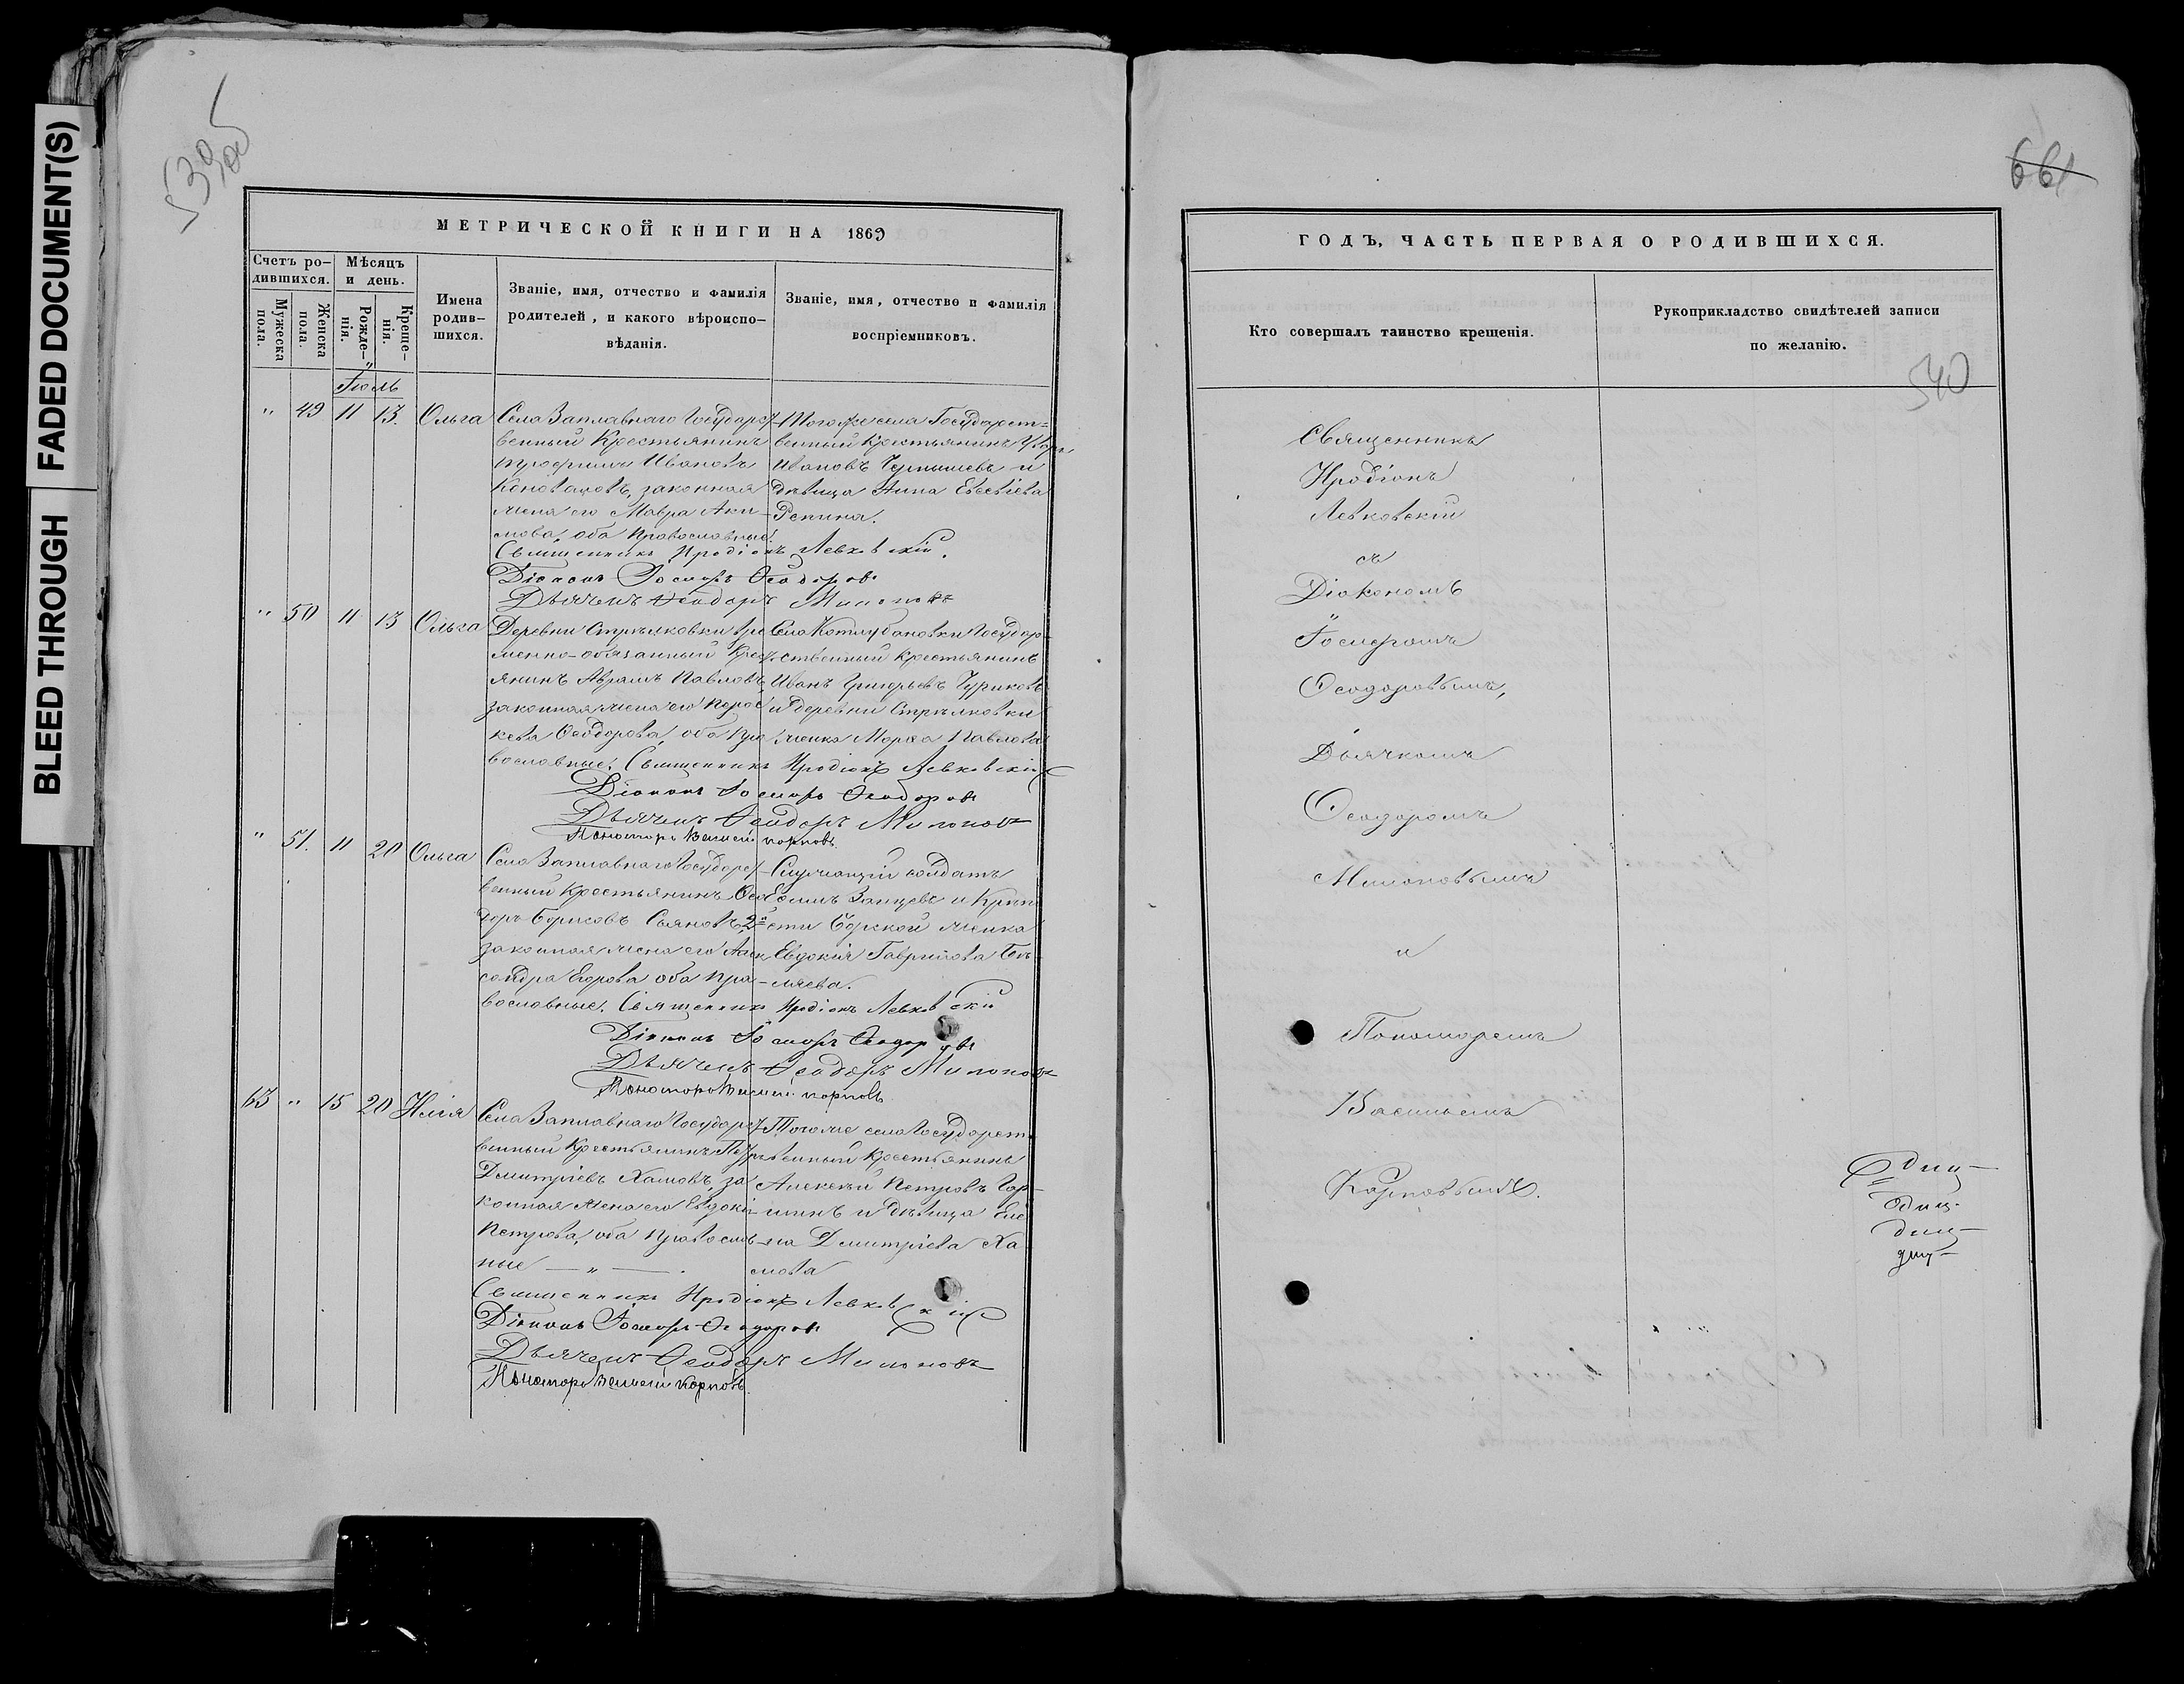 BLEED THROUGH FADED DOCUMENT(S)
539 об
МЕТРИЧЕСКОЙ КНИГИ НА 1869
Счетъ ро-
дившихся.
Мужеска
пола.
Женска
пола.
Мѣсяцъ
и день.
Рожде-
нія.
Креще-
нія.
Имена
родив-
шихся.
Званіе, имя, отчество и фамилія
родителей, и какого вѣроиспо-
вѣданія.
Званіе, имя, отчество и фамилія
воспріемниковъ.
Іюль
" 49 11 13. Ольга
Села Заплавнаго Государст-
венный Крестьянинъ
Трофимъ Ивановъ
Коновалов, законная
жена его Мавра Аки-
мова, оба Православные.
Тогоже села Государст-
венный Крестьянинъ
Ивановъ Чернышевъ и
дѣвица Анна Евсевіева
Репина.
Священникъ Иродіонъ Левковскій.
Діаконъ Іосифъ Ѳеодоровъ
Дьячекъ Ѳеодоръ Милоновъ
" 50 11 13 Ольга
Деревни Стрѣлковки вре
менно-обязанный Крест
янинъ Аврамъ Павловъ,
законная жена его Парас
кева Ѳеодорова, оба пра
вославные.
Села Котлубановки Государ-
ственный крестьянинъ
Иванъ Григорьевъ Чуриковъ
и деревни Стрѣлковки
женка Марѳа Павлова
Священникъ Иродіонъ Левковскій
Діаконъ Іосифъ Ѳеодоровъ
Дьячекъ Ѳеодоръ Милоновъ
Пономарь Василій Карповъ
" 51. 11 20 Ольга
Села Заплавнаго Государст-
венный Крестьянинъ Ѳео
доръ Борисовъ Сѣяновъ, 2й
законная жена его Алек
сандра Егорова оба пра-
вославные.
Служащій солдатъ
Ефимъ Зайцевъ и Крѣп
ости Борской женка
Евдокія Гаврилова Бѣ
ляева.
Священникъ Иродіонъ Левковскій
Діаконъ Іосифъ Ѳеодоровъ
Дьячекъ Ѳеодоръ Милоновъ
Пономарь Василій Карповъ
63 " 15 20 Илія
Села Заплавнаго Государст-
венный Крестьянинъ Петръ
Дмитріевъ Хамовъ, за
конная жена его Евдокія
Петрова, оба православ
ные — " — .
Тогоже села Государст-
венный Крестьянинъ
Алексѣй Петровъ Гор-
шинъ и дѣвица Еле
на Дмитріева Ха
мова
Священникъ Иродіонъ Левковскій
Діаконъ Іосифъ Ѳеодоровъ
Дьячекъ Ѳеодоръ Милоновъ
Пономарь Василій Карповъ.
661
ГОДЪ, ЧАСТЬ ПЕРВАЯ О РОДИВШИХСЯ.
Кто совершалъ таинство крещенія.
Рукоприкладство свидѣтелей записи
по желанію.
540
Священникъ
Иродіонъ
Левковскій
съ
Діакономъ
Іосифомъ
Ѳеодоровымъ,
Дьячкомъ
Ѳеодоромъ
Милоновымъ
и
Пономаремъ
Васильемъ
Карповымъ.